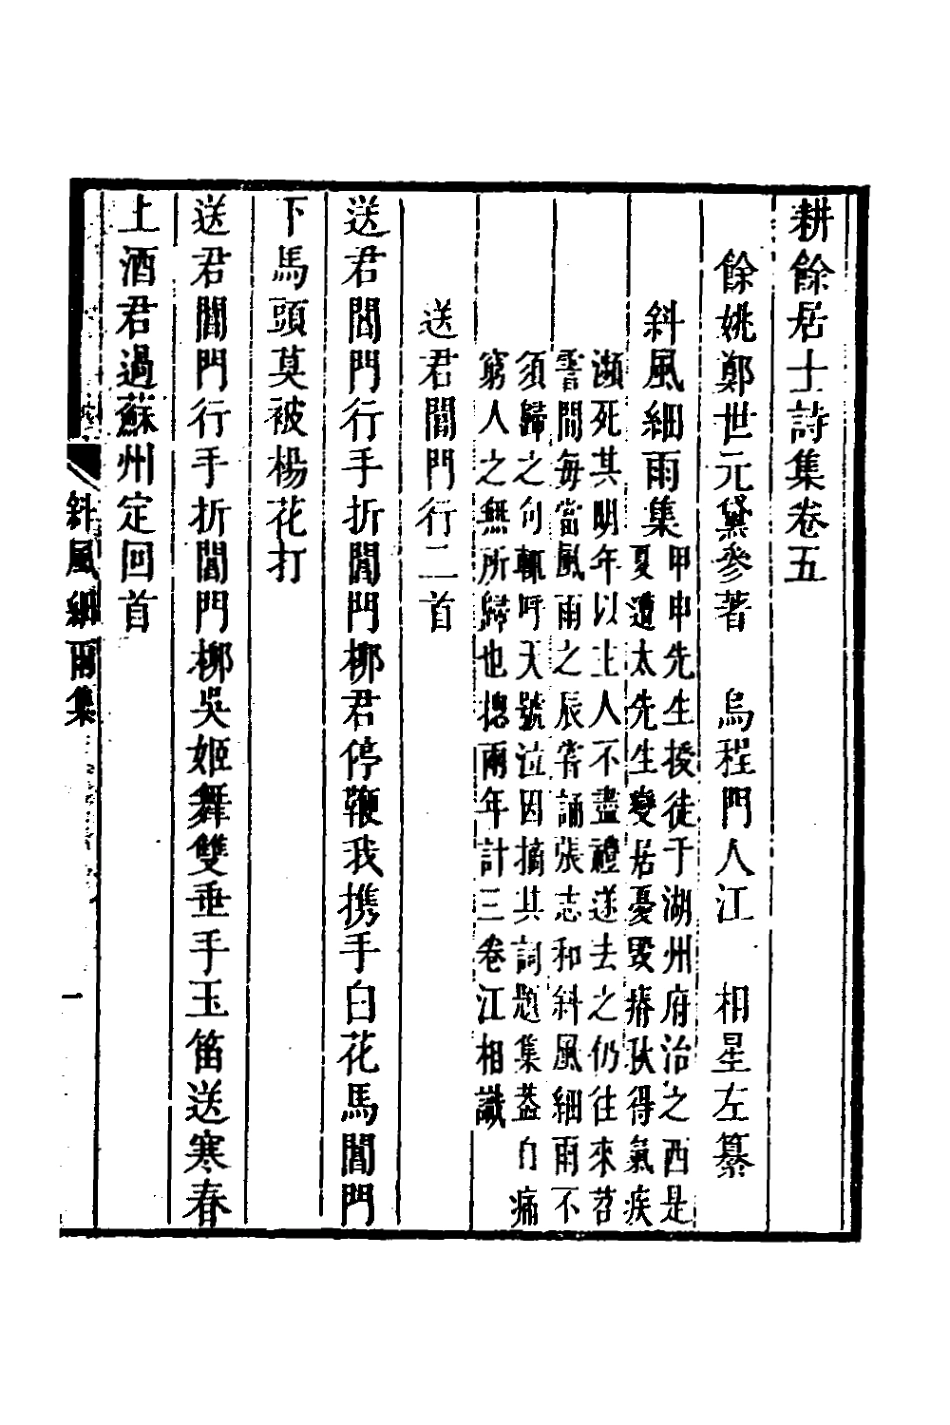 耕餘居士詩集卷五
餘姚鄭世元黛參著　烏程門人江　相星左纂
斜風細雨集
甲申先生授徒于湖州府治之西是
夏遭太先生變居憂毀瘠秋得氣疾
瀕死其明年以主人不盡禮遂去之仍往來苕
霅間每當風雨之辰嘗誦張志和斜風細雨不
須歸之句輒呼天號泣因摘其詞題集蓋自痛
窮人之無所歸也摠兩年計三卷江相識
送君閶門行二首
送君閶門行手折閶門柳君停鞭我携手白花馬閶門
下馬頭莫被楊花打
送君閶門行手折閶門柳吳姬舞雙垂手玉笛送寒春
上酒君過蘇州定回首
斜風細雨集
一